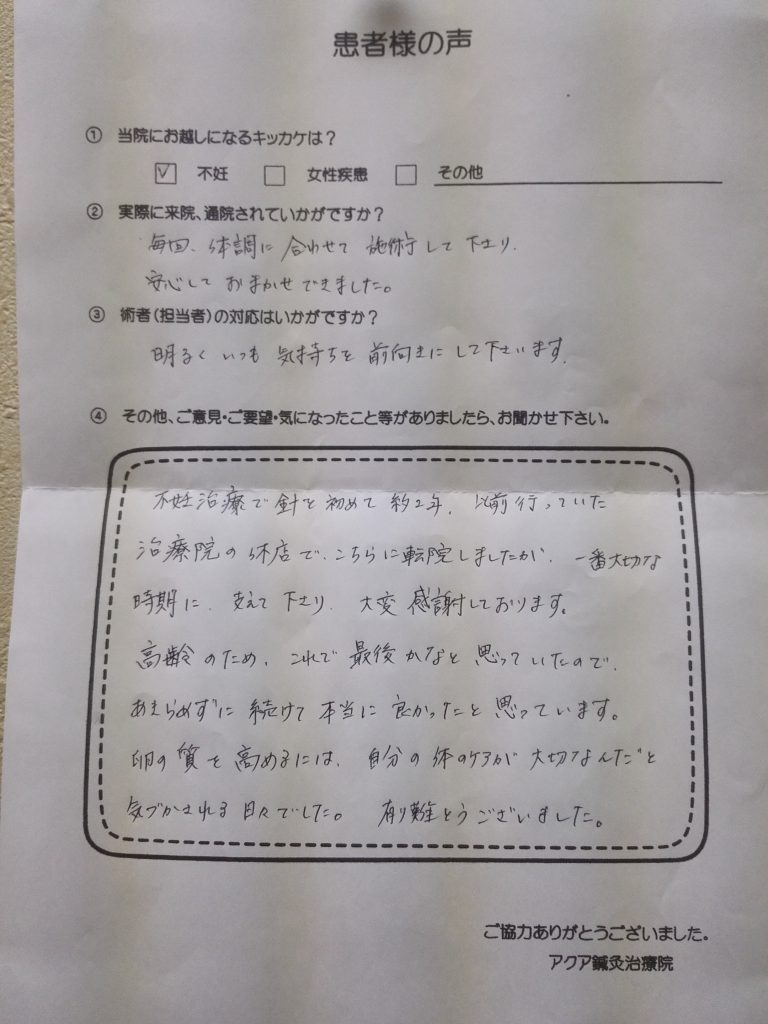 患者様の声
① 当院にお越しになるキッカケは？
☑ 不妊 ☐ 女性疾患 ☐ その他
② 実際に来院、通院されていかがですか？
毎回、体調に合わせて施術して下さり、
安心しておまかせできました。
③ 術者(担当者)の対応はいかがですか？
明るくいつも気持ちを前向きにして下さいます。
④ その他、ご意見・ご要望・気になったこと等がありましたら、お聞かせ下さい。
不妊治療で針を初めて約2年、以前行っていた
治療院の休店で、こちらに転院しましたが、一番大切な
時期に、支えて下さり、大変感謝しております。
高齢のため、これで最後かなと思っていたので、
あきらめずに続けて本当に良かったと思っています。
卵の質を高めるには、自分の体のケアが大切なんだと
気づかされる日々でした。 有り難とうございました。
ご協力ありがとうございました。
アクア鍼灸治療院